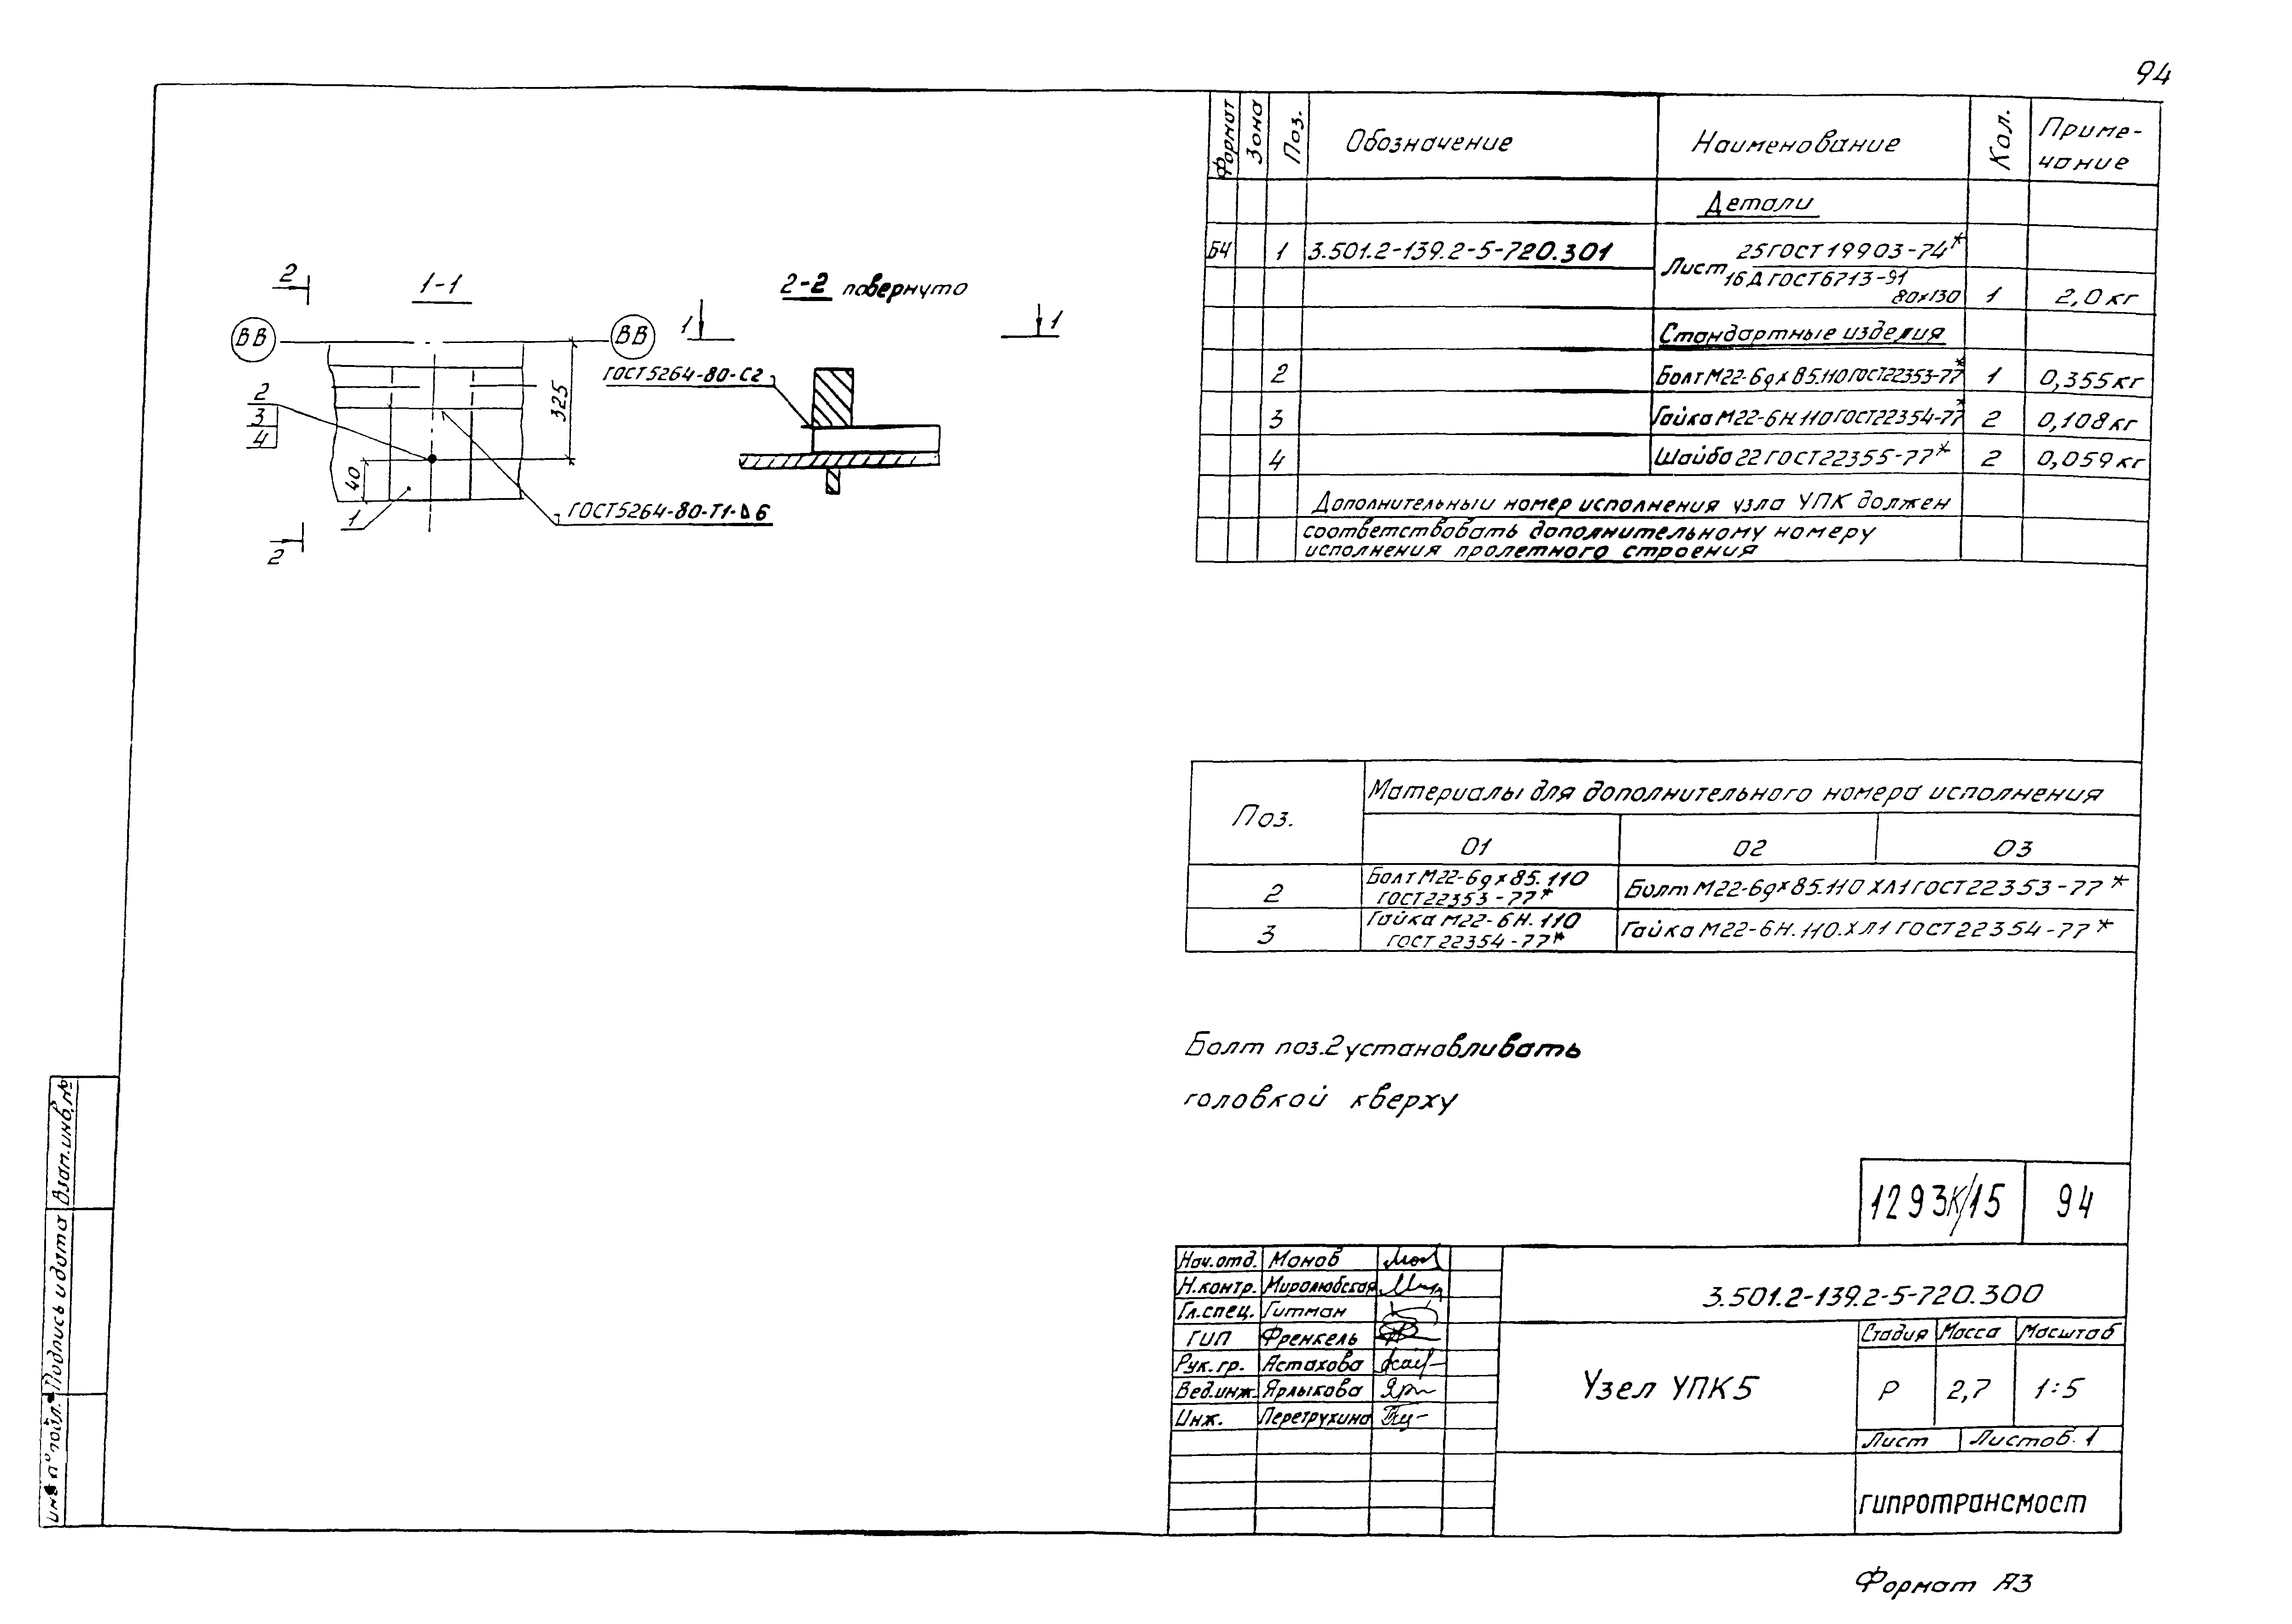 94
Формат
Зона
Поз.
Обозначение
Наименование
Кол.
Приме-
чание
Детали
БЧ 1 3.501.2-139.2-5-720.301
Лист 25 ГОСТ 19903-74*
16Д ГОСТ 6713-91
80х130 1 2,0 кг
Стандартные изделия
2 Болт М22-6gх85.110 ГОСТ 22353-77* 1 0,355 кг
3 Гайка М22-6Н.110 ГОСТ 22354-77* 2 0,108 кг
4 Шайба 22 ГОСТ 22355-77* 2 0,059 кг
Дополнительный номер исполнения узла УПК должен
соответствовать дополнительному номеру
исполнения пролетного строения
2
1-1
ВВ
ВВ
2
3
4
325
40
1
2
ГОСТ 5264-80-Т1-Δ6
2-2 повернуто
1
1
ГОСТ 5264-80-С2
Поз.
Материалы для дополнительного номера исполнения
01 02 03
2
Болт М22-6gх85.110
ГОСТ 22353-77*
Болт М22-6gх85.110 ХЛ1 ГОСТ 22353-77*
3
Гайка М22-6Н.110
ГОСТ 22354-77*
Гайка М22-6Н.110.ХЛ1 ГОСТ 22354-77*
Болт поз.2 устанавливать
головкой кверху
1293К/15 94
Нач.отд. Монов
Н.контр. Миролюбская
Гл.спец. Гитман
ГИП Френкель
Рук.гр. Астахова
Вед.инж. Ярлыкова
Инж. Перетрухина
3.501.2-139.2-5-720.300
Узел УПК5
Стадия Масса Масштаб
Р 2,7 1:5
Лист Листов 1
ГИПРОТРАНСМОСТ
Взам.инв.№
Подпись и дата
Инв.№ подл.
Формат А3